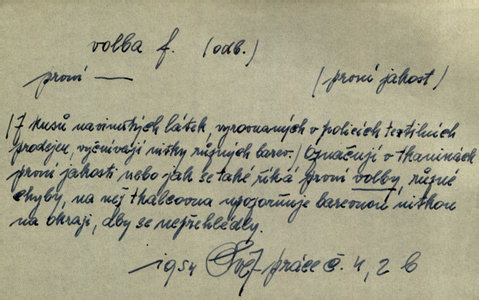 volba f. (odb.)
první — (první jakost)
/Z kusů navinutých látek, vyrovnaných v policích textilních
prodejen, vyčnívají nitky různých barev./ Označují v tkaninách
první jakosti nebo jak se také říká první volby, různé
chyby, na něž tkalcovna upozorňuje barevnou nitkou
na okraji, aby se nepřehlédly.
1954 Svět práce č. 4, 2 b